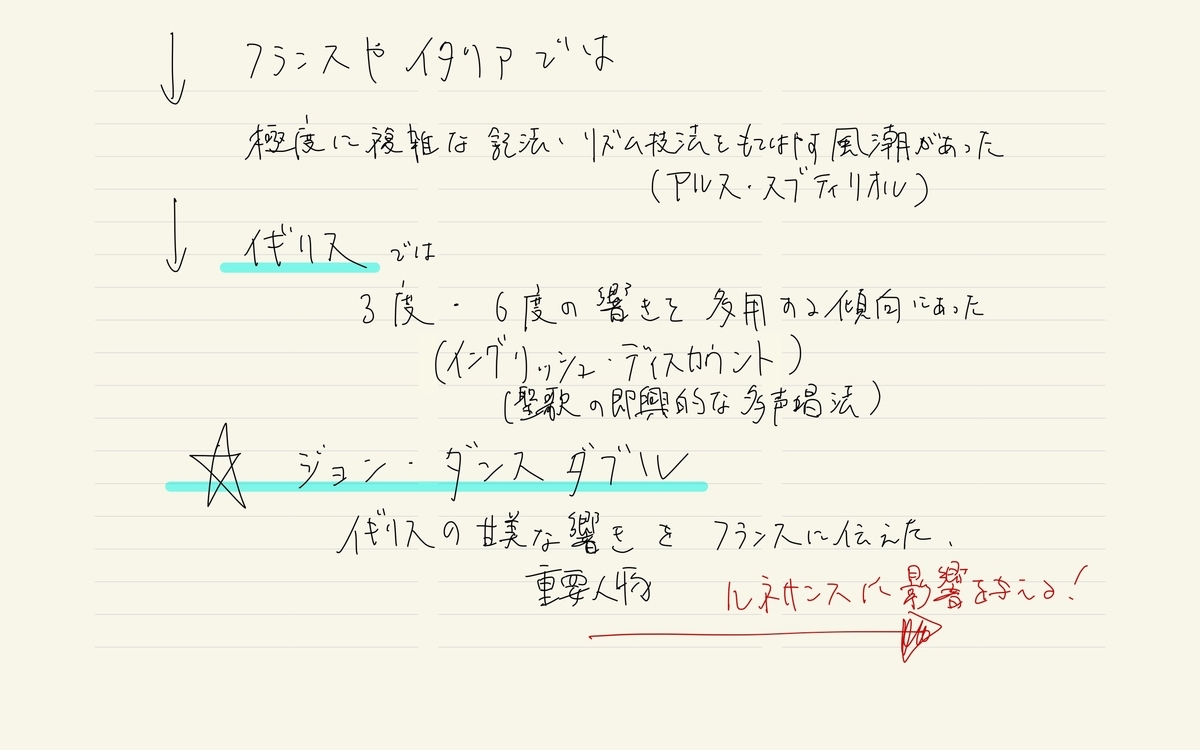 ↓ フランスや イタリアでは
極度に複雑な 記法・リズム技法をもてはやす風潮があった
(アルス・スブティリオル)
↓ イギリスでは
3度・6度の響きを多用する傾向にあった
(イングリッシュ・ディスカウント)
(聖歌の即興的な多声唱法)
☆ ジョン・ダンスダブル
イギリスの甘美な響きをフランスに伝えた、
重要人物 ルネサンスに影響を与える!